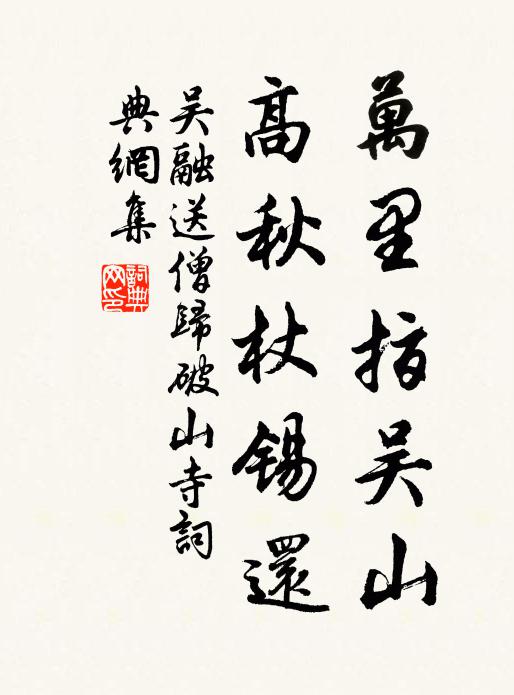 萬里指吴山
高秋杖錫還
吴融送僧歸破山寺詞
典網集
詞典
网印